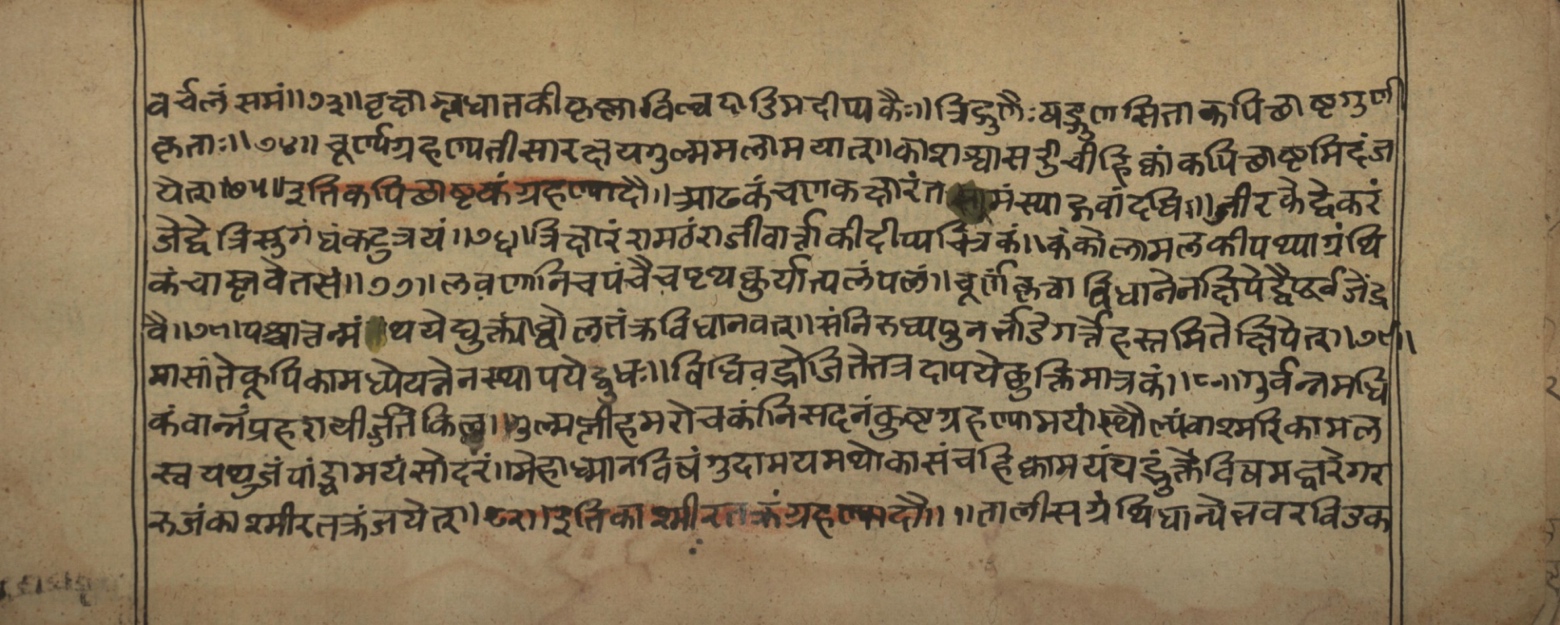 वर्चलं समं॥७३॥वृक्षाम्लधातकीकृष्णाविल्वदाडिमदीप्यकैः॥त्रिगुणैःषड्गुणसिताकपिछाष्टगुणी
कृताः॥७४॥चूर्णंग्रहण्यतीसारक्षयगुल्मगलामयात्॥काशश्वासरुचीहिक्कांकपिछाष्टमिदंज
येत्॥७५॥इतिकपिछाष्टकंग्रहण्यादौ॥आढकंचणकक्षारंत मंस्याद्गवांदधि॥जीरकैद्वेकरं
जेद्वेत्रिसुगंधंकटुत्रयं॥७६॥त्रिक्षारंरामठंराजीवार्त्ताकीदीप्यचित्रकं॥कंकोलामलकीपथ्याग्रंथि
कंचाम्लवेतसं॥७७॥लवणानिचपंचैचपृथक्कुर्यात्पलंपलं॥चूर्णंकृत्वाविधानेनक्षिपेद्वैपूर्वजेंद्र
वै॥७८॥पश्चात्तन्मं थयेद्युक्त्या लतंक्रविधानवत्॥संनिरुध्यपुनर्भांडेगर्त्तेहस्तमितेक्षिपेत्॥७९॥
मासांतेकूपिकामध्येयत्नेनस्थापयेद्बुधः॥विधिवद्भोजितेतत्रदापयेछुक्तिमात्रकं॥८०॥गुर्वन्नमधि
कंवान्नंप्रहरार्धाज्जीर्यति किल॥गुल्मप्लीहमरोचकंनिसदनंकुष्टग्रहण्यामयांस्थौल्यंवाश्मरिकामल
स्वयथुजंपांड्वामयंसोदरं॥मेहाध्मानविषंगुदामयमथोकासंचहिक्कामयं विषमज्वरेगर
रुजंकाश्मीरतक्रंजयेत्॥८१॥इतिकाश्मीरतक्रंग्रहण्यादौ॥॥तालीसग्रंथिधान्येलवरविडक